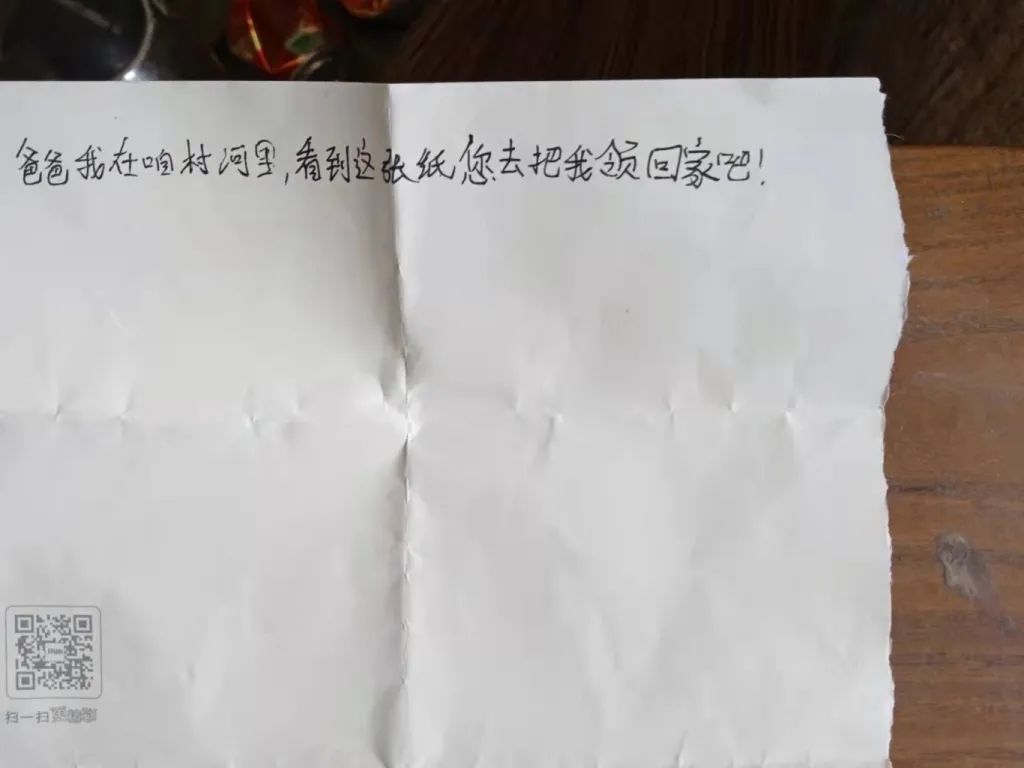 爸爸我在咱村河里,看到这张纸,您去把我领回家吧!
扫一扫